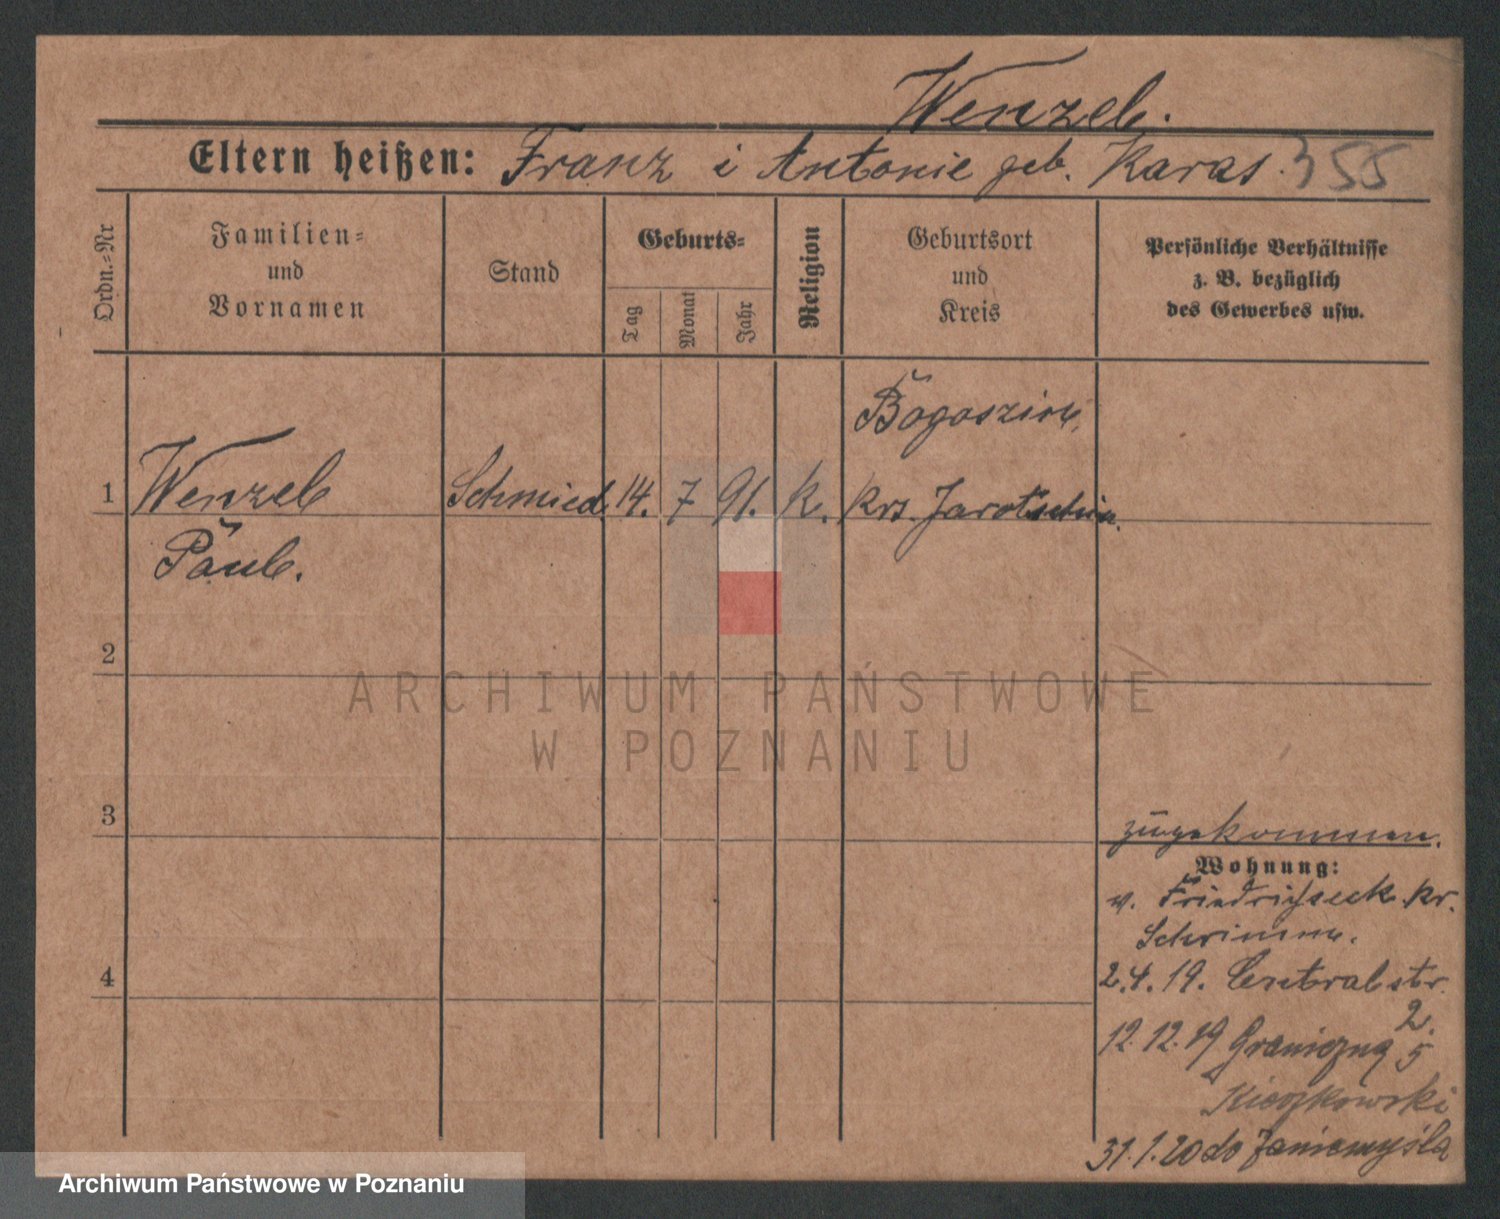 Wenzel.
Eltern heißen: Franz i Antonie geb. Karas. 355
Ordn.=Nr
Familien=
und
Vornamen
Stand
Geburts=
Tag
Monat
Jahr
Religion
Geburtsort
und
Kreis
Persönliche Verhältnisse
z. B. bezüglich
des Gewerbes usw.
Bogoszin,
1 Wenzel Schmied 14. 7 91. k. Krs. Jarotschin.
Paul.
2
ARCHIWUM PAŃSTWOWE
W POZNANIU
3
zugekommen.
Wohnung:
v. Friedrichseck kr.
Schrimm.
4
2.4.19. Centralstr.
2.
12.12.19 Graniczna 5
Kieczkowski
31.1.20 do Zaniemyśla
Archiwum Państwowe w Poznaniu